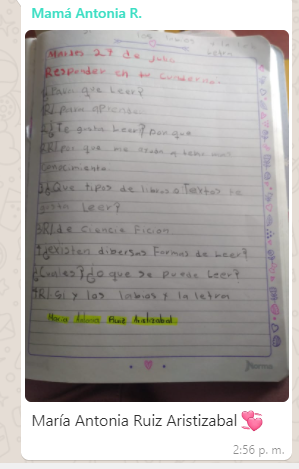 Mamá Antonia R.
Martes 27 de julio
Responder en tu cuaderno.
¿Para que Leer?
R/. para aprender
¿Te gusta Leer? por que
R/. por que me
conocimiento
¿Que tipos de libros o Textos te
gusta Leer?
3R/. de Ciencia Ficion
4 ¿existen dibersas Formas de Leer?
¿Cuales? ¿o que se puede Leer?
4R/. Si y los labios y la letra
Maria Antonia Ruiz Aristizabal
Norma
María Antonia Ruiz Aristizabal
2:56 p. m.